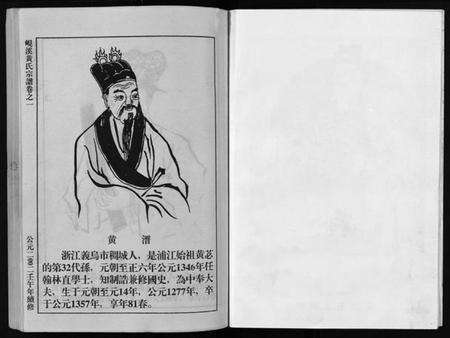 峴溪黃氏宗譜卷之一
公元二零零二壬午年續修
黃溍
浙江義烏市稠城人，是浦江始祖黃苾
的第32代孫，元朝至正六年公元1346年任
翰林直學士，知制誥兼修國史，為中奉大
夫，生于元朝至元14年，公元1277年，卒
于公元1357年，享年81春。